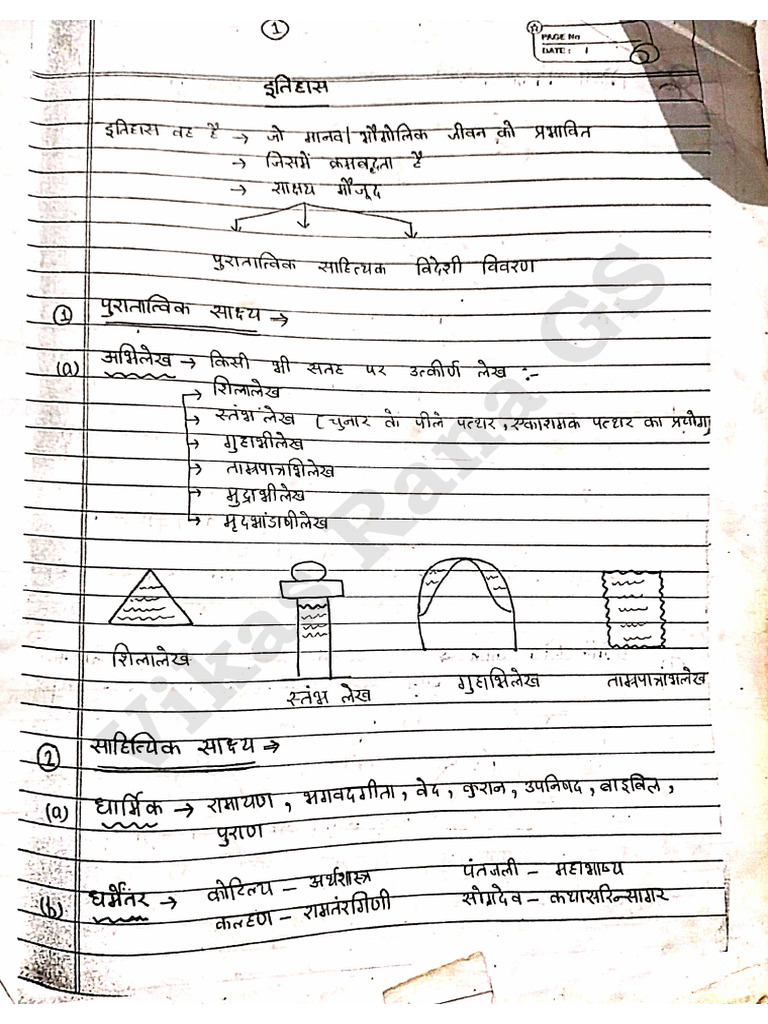 1
PAGE No
DATE: 1
इतिहास
इतिहास वह है → जो मानव/भौगोलिक जीवन को प्रभावित
→ जिसमें क्रमबद्धता है
→ साक्षय मौजूद
पुरातात्विक साहित्यिक विदेशी विवरण
① पुरातात्विक साक्ष्य →
(a) अभिलेख → किसी भी सतह पर उत्कीर्ण लेख :-
→ शिलालेख
→ स्तंभ लेख (चुनार के पीले पत्थर, एकाश्मक पत्थर का प्रयोग)
→ गुहाभीलेख
→ ताम्रपात्रभिलेख
→ मुद्राभीलेख
→ मृदभांडाभीलेख
शिलालेख स्तंभ लेख गुहाभिलेख ताम्रपात्राभिलेख
② साहित्यिक साक्ष्य →
(a) धार्मिक → रामायण, भगवदगीता, वेद, कुरान, उपनिषद, बाइबिल,
पुराण
(b) धर्मेतर → कोटिल्य – अर्थशास्त्र पंतजली – महाभाष्य
कल्हण – रामतंरगिणी सोमदेव – कथासरिन्सागर
Vikas Rana GS